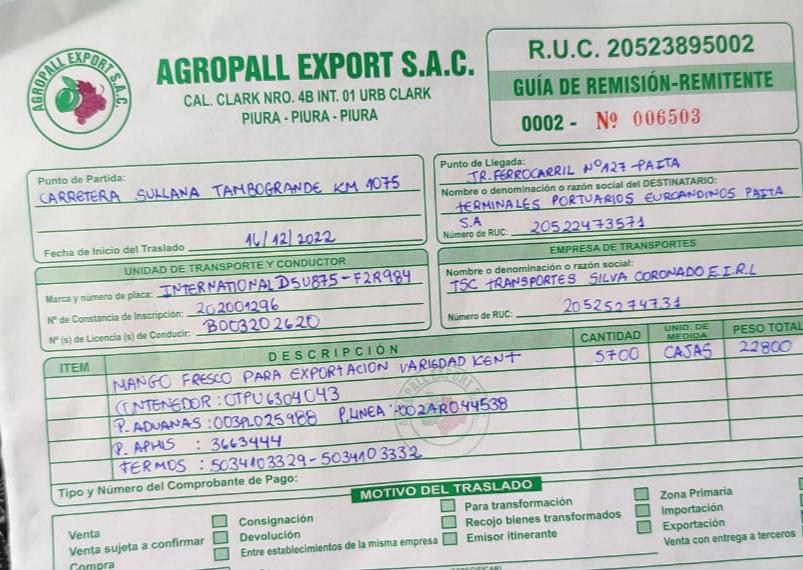 AGROPALL EXPORT S.A.C.
AGROPALL EXPORT S.A.C.
CAL. CLARK NRO. 4B INT. 01 URB CLARK
PIURA - PIURA - PIURA
R.U.C. 20523895002
GUÍA DE REMISIÓN-REMITENTE
0002 - Nº 006503
Punto de Partida:
CARRETERA SULLANA TAMBOGRANDE KM 1075
Fecha de Inicio del Traslado 14/12/2022
Punto de Llegada:
JR. FERROCARRIL Nº127 -PAITA
Nombre o denominación o razón social del DESTINATARIO:
TERMINALES PORTUARIOS EUROANDINOS PAITA
S.A
Número de RUC: 20522473571
UNIDAD DE TRANSPORTE Y CONDUCTOR
Marca y número de placa: INTERNATIONAL D5U875-F2R984
Nº de Constancia de Inscripción: 202001296
Nº (s) de Licencia (s) de Conducir: B003202620
EMPRESA DE TRANSPORTES
Nombre o denominación o razón social:
TSC TRANSPORTES SILVA CORONADO E.I.R.L
Número de RUC: 20525274731
ITEM DESCRIPCIÓN CANTIDAD UNID. DE MEDIDA PESO TOTAL
MANGO FRESCO PARA EXPORTACION VARIEDAD KENT 5700 CAJAS 22800
CONTENEDOR : OTPU6304043
P. ADUANAS :003AL025988 P.LINEA :002AR044538
P. APHIS : 3663444
TERMOS : 5034103329-5034103332
AGROPALL EXPORT S.A.C.
Tipo y Número del Comprobante de Pago:
MOTIVO DEL TRASLADO
Venta
Venta sujeta a confirmar
Compra
Consignación
Devolución
Entre establecimientos de la misma empresa
Para transformación
Recojo bienes transformados
Emisor itinerante
Zona Primaria
Importación
Exportación
Venta con entrega a terceros